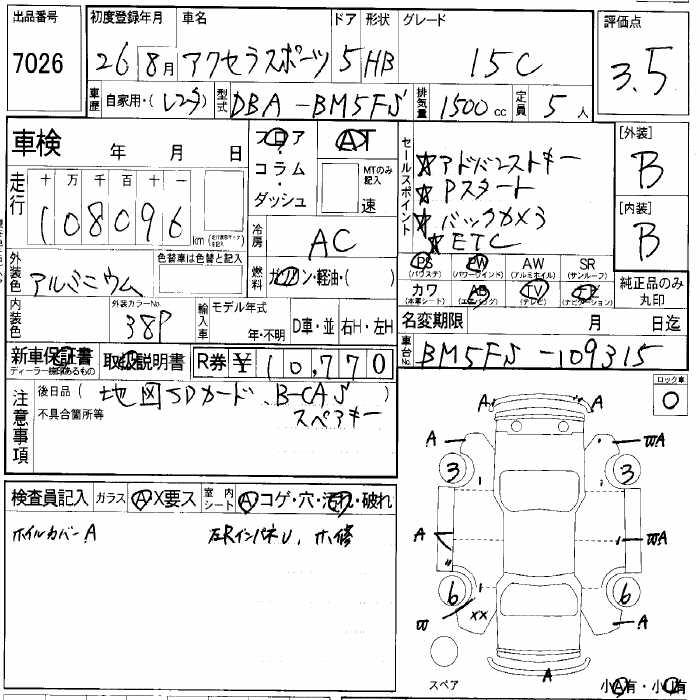 出品番号 初度登録年月 車名 ドア 形状 グレード 評価点
7026 26 8月 アクセラスポーツ 5 HB 15C 3.5
車歴 自家用・(レンタ) 型式 DBA-BM5FS 排気量 1500cc 定員 5人
車検 年 月 日
フロア・コラム・ダッシュ
AT
MTのみ記入
速
セールスポイント
アドバンストキー
Pスタート
バックカメラ
ETC
[外装]
B
[内装]
B
走行 十 万 千 百 十 一
108096 km
冷房 AC
外装色 アルミニウム 色替車は色替と記入
燃料 ガソリン・軽油・( )
PS (パワステ) PW (パワーウインド) AW (アルミホイル) SR (サンルーフ)
カワ (本革シート) AB (エアバッグ) TV (テレビ) ナビ (ナビゲーション)
純正品のみ丸印
内装色 外装カラーNo. 38P
輸入車 モデル年式 年・不明 D車・並 右H・左H
名変期限 月 日迄
新車保証書 ディーラー捺印あるもの 取扱説明書 R券 ¥10,770
車台No. BM5FS-109315
注意事項 後日品 ( 地図SDカード、B-CAS )
不具合箇所等 スペアキー
ロック車
検査員記入 ガラス A・X要ス 室内シート A・コゲ・穴・汚れ・破れ
ホイルカバーA 左RインパネU、ホ修
A A
A WA
3 3
A WA
6 6
W XX A
A
スペア 小A有・小U有